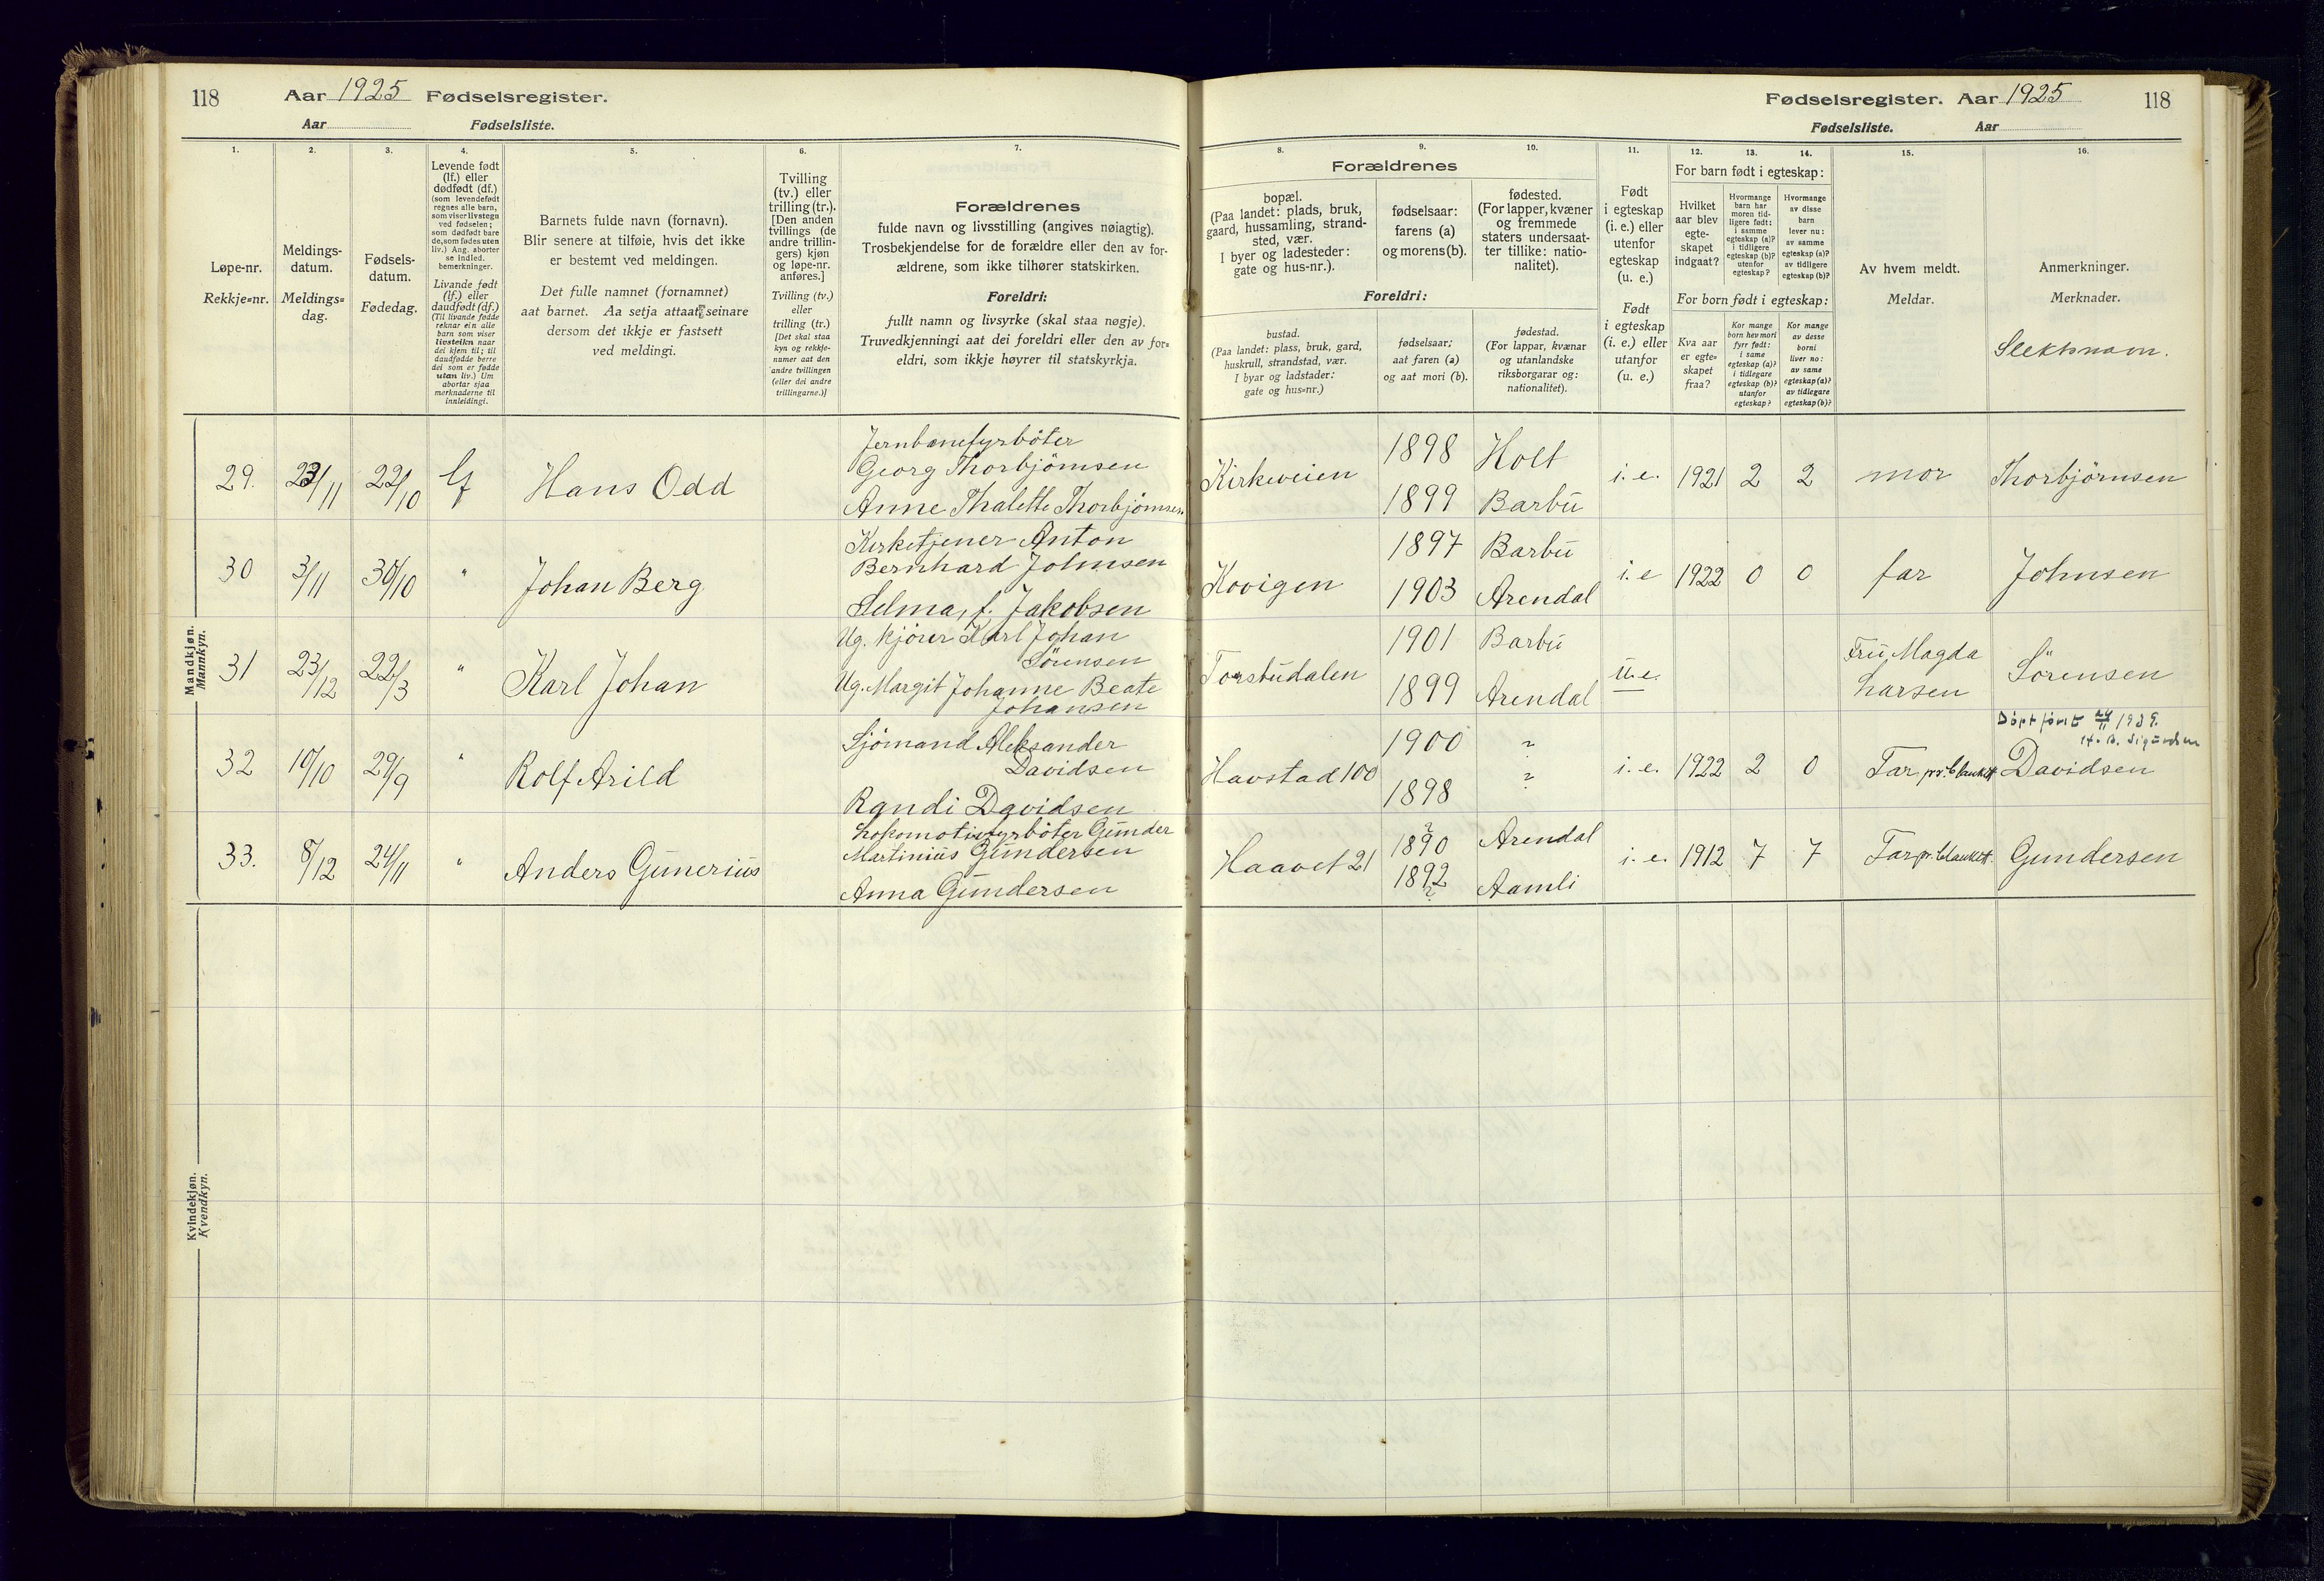 118 Aar 1925 Fødselsregister.
Aar Fødselsliste.
Fødselsregister. Aar 1925 118
Fødselsliste. Aar
1. 2. 3. 4. 5. 6. 7. 8. 9. 10. 11. 12. 13. 14. 15. 16.
Løpe-nr.
Rekkje=nr.
Meldings-
datum.
Meldings=
dag.
Fødsels-
datum.
Fødedag.
Levende født
(lf.) eller
dødfødt (df.)
(som levendefødt
regnes alle barn,
som viser livstegn
ved fødselen;
som dødfødt bare
de, som fødes uten
liv.) Ang. aborter
se indled.
bemerkninger.
Livande født
(lf.) eller
daudfødt (df.)
(Til livande fødde
reknar ein alle
barn som viser
livsteikn naar
dei kjem til; til
daudfødde berre
dei som er fødde
utan liv.) Um
abortar sjaa
merknaderne til
innleidingi.
Barnets fulde navn (fornavn).
Blir senere at tilføie, hvis det ikke
er bestemt ved meldingen.
Det fulle namnet (fornamnet)
aat barnet. Aa setja attaat seinare
dersom det ikkje er fastsett
ved meldingi.
Tvilling
(tv.) eller
trilling (tr.).
[Den anden
tvillings (de
andre trillin-
gers) kjøn
og løpe-nr.
anføres.]
Tvilling (tv.)
eller
trilling (tr.)
[Det skal staa
kyn og rekkje-
numer aat den
andre tvillingen
(eller dei andre
trillingarne.)]
Forældrenes
fulde navn og livsstilling (angives nøiagtig).
Trosbekjendelse for de forældre eller den av for-
ældrene, som ikke tilhører statskirken.
Foreldri:
fullt namn og livsyrke (skal staa nøgje).
Truvedkjenningi aat dei foreldri eller den av for=
eldri, som ikkje høyrer til statskyrkja.
Forældrenes
bopæl.
(Paa landet: plads, bruk,
gaard, hussamling, strand-
sted, vær.
I byer og ladesteder:
gate og hus-nr.).
fødselsaar:
farens (a)
og morens (b).
fødested.
(For lapper, kvæner
og fremmede
staters undersaat-
ter tillike: natio-
nalitet).
Foreldri:
bustad.
(Paa landet: plass, bruk, gard,
huskrull, strandstad, vær.
I byar og ladstader:
gate og hus=nr.)
fødselsaar:
aat faren (a)
og aat mori (b).
fødestad.
(For lappar, kvænar
og utanlandske
riksborgarar og:
nationalitet).
Født
i egteskap
(i. e.) eller
utenfor
egteskap
(u. e.)
Født
i egteskap
(i. e.) eller
utanfor
(u. e.)
For barn født i egteskap:
Hvilket
aar blev
egte-
skapet
indgaat?
Hvormange
barn har
moren tid-
ligere født:
i samme
egteskap (a)?
i tidligere
egteskap (b)?
utenfor
egteskap?
Hvormange
av disse
barn
lever nu:
av samme
egteskap (a)?
av tidligere
egteskap (b)?
For born født i egteskap:
Kva aar
er egte=
skapet
fraa?
Kor mange
born hev mori
fyrr født:
i same
egteskap (a)?
i tidlegare
egteskap (b)?
utanfor
egteskap?
Kor mange
av desse
borni
liver no:
av same
egteskap (a)?
av tidlegare
egteskap (b)?
Av hvem meldt.
Meldar.
Anmerkninger.
Merknader.
Slektsnavn.
Mandkjøn.
Mannkyn.
29. 23/11 22/10 lf Hans Odd
Jernbanefyrböter
Georg Thorbjörnsen
Anne Thalette Thorbjörnsen
Kirkeveien 1898 Holt
1899 Barbu
i. e. 1921 2 2 mor Thorbjörnsen
30 3/11 30/10 " Johan Berg
Kirketjener Anton
Bernhard Johnsen
Selma, f. Jakobsen
Kovigen 1897 Barbu
1903 Arendal
i. e 1922 0 0 far Johnsen
31 23/12 22/3 " Karl Johan
Ug. kjører Karl Johan
Sörensen
Ug. Margit Johanne Beate
Johansen
Torsbudalen 1901 Barbu
1899 Arendal
u. e.
Fru Magda
Larsen
Sörensen
Döpt först 24/11 1939.
32 10/10 29/9 " Rolf Arild
Sjömand Aleksander
Davidsen
Randi Davidsen
Havstad 100 1900 ?
1898 ?
i. e. 1922 2 0 Far pr. blankett Davidsen
33. 8/12 24/11 " Anders Gunerius
Lokomotivfyrböter Gunder
Martinius Gundersen
Anna Gundersen
Haavet 21 1890 ? Arendal
1892 ? Aamli
i. e. 1912 7 7 Far pr. blankett. Gundersen
Kvindekjøn.
Kvendkyn.